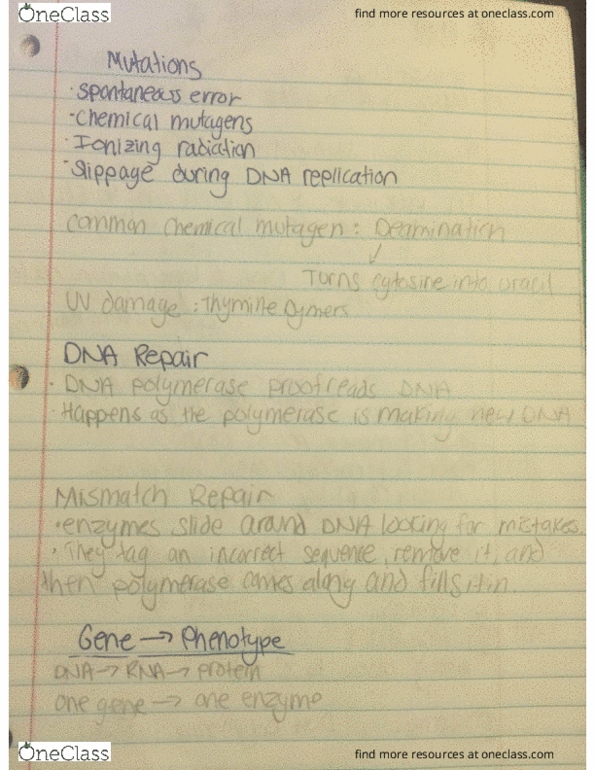 OneClass
find more resources at oneclass.com
Mutations
· spontaneous error
· chemical mutagens
· Ionizing radiation
· Slippage during DNA replication
common chemical mutagen: Deamination
Turns cytosine into uracil
UV damage: Thymine Dymers
DNA Repair
· DNA polymerase proofreads DNA
· Happens as the polymerase is making new DNA
Mismatch Repair
· enzymes slide around DNA looking for mistakes.
· They tag an incorrect sequence, remove it, and
then polymerase comes along and fills it in.
Gene → Phenotype
DNA → RNA → protein
one gene → one enzyme
OneClass
find more resources at oneclass.com